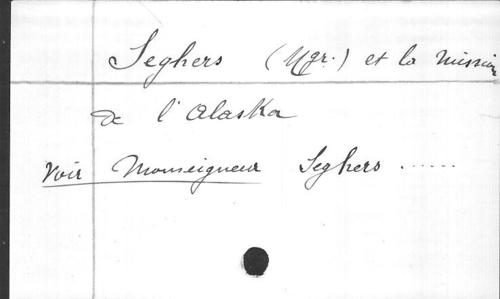 Seghers (Mgr.) et la mission
de l'Alaska
Voir Monseigneur Seghers ......